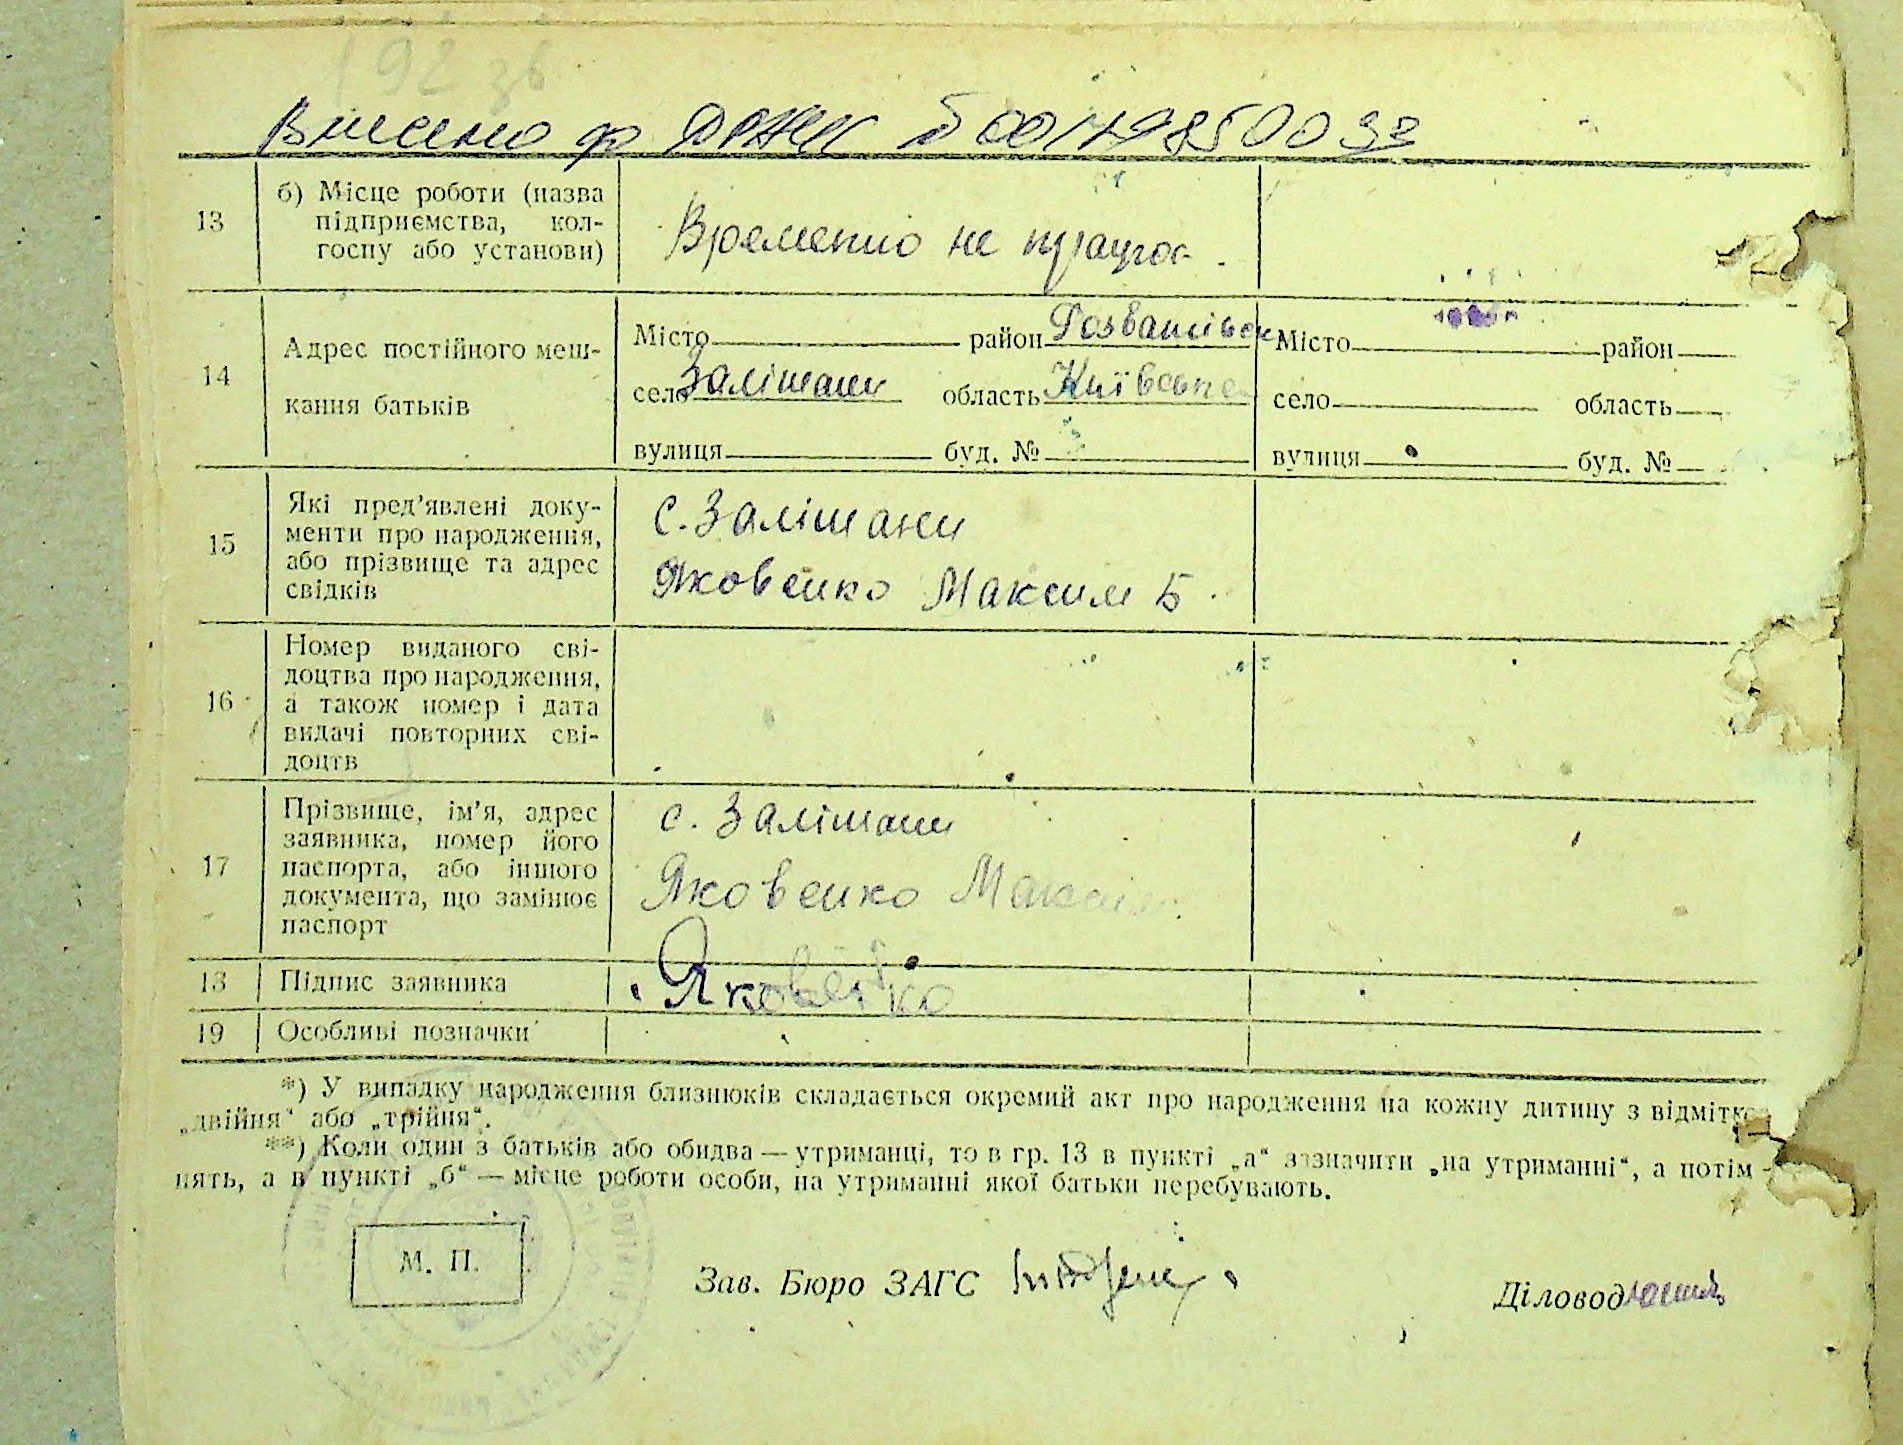 192 зв
Внесено ф ДРАЦС
13 б) Місце роботи (назва
підприємства, кол-
госпу або установи)
Временно не працює.
14 Адрес постійного меш-
кання батьків
Місто район Розважівськ Місто район
село Залішани область Київська село область
вулиця буд. № вулиця буд. №
15 Які пред'явлені доку-
менти про народження,
або прізвище та адрес
свідків
с. Залішани
Яковенко Максим Б.
16 Номер виданого сві-
доцтва про народження,
а також номер і дата
видачі повторних сві-
доцтв
17 Прізвище, ім'я, адрес
заявника, номер його
паспорта, або іншого
документа, що замінює
паспорт
с. Залішани
Яковенко Максим
18 Підпис заявника Яковенко
19 Особливі позначки
*) У випадку народження близнюків складається окремий акт про народження на кожну дитину з відмітк
„двійня“ або „трійня“.
**) Коли один з батьків або обидва — утриманці, то в гр. 13 в пункті „а“ зазначити „на утриманні“, а потім
нять, а в пункті „б“ — місце роботи особи, на утриманні якої батьки перебувають.
М. П.
Зав. Бюро ЗАГС
Діловод